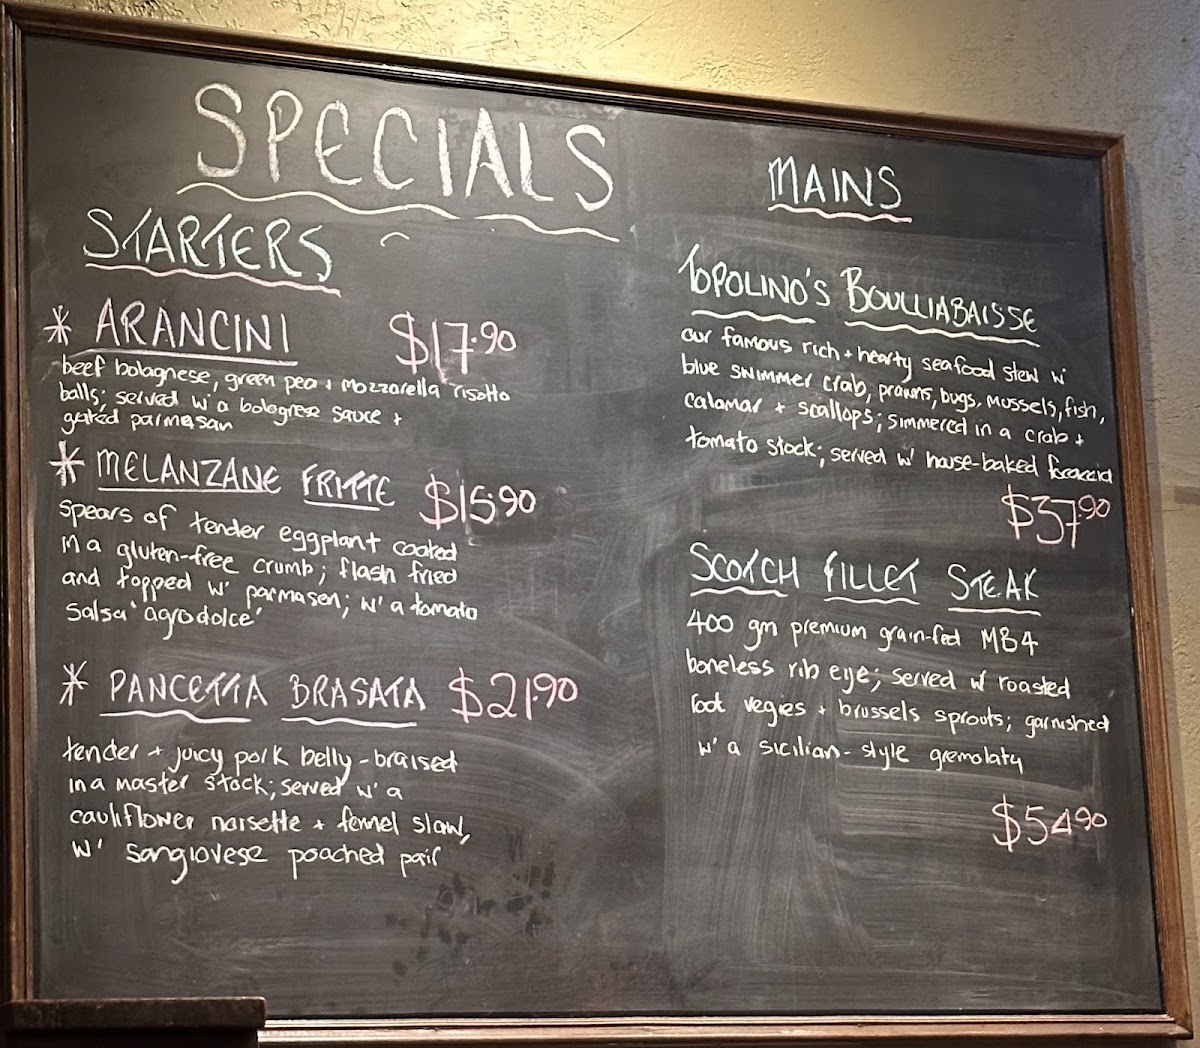 SPECIALS
STARTERS
* ARANCINI $17.90
beef bolognese, green pea + mozzarella risotto
balls; served w' a bolognese sauce +
gated parmesan
* MELANZANE FRITTE $15.90
spears of tender eggplant coated
in a gluten-free crumb; flash fried
and topped w' parmasen; w' a tomato
salsa 'agrodolce'
* PANCETTA BRASATA $21.90
tender + juicy pork belly - braised
in a master stock; served w' a
cauliflower noisette + fennel slaw,
w' sangiovese poached pair
MAINS
TOPOLINO'S BOULLIABAISSE
our famous rich + hearty seafood stew w'
blue swimmer crab, prawns, bugs, mussels, fish,
calamar + scallops; simmered in a crab +
tomato stock; served w' house-baked focaccia
$37.90
SCOTCH FILLET STEAK
400 gm premium grain-fed MB4
boneless rib eye; served w' roasted
root vegies + brussels sprouts; garnished
w' a sicilian-style gremolaty
$54.90